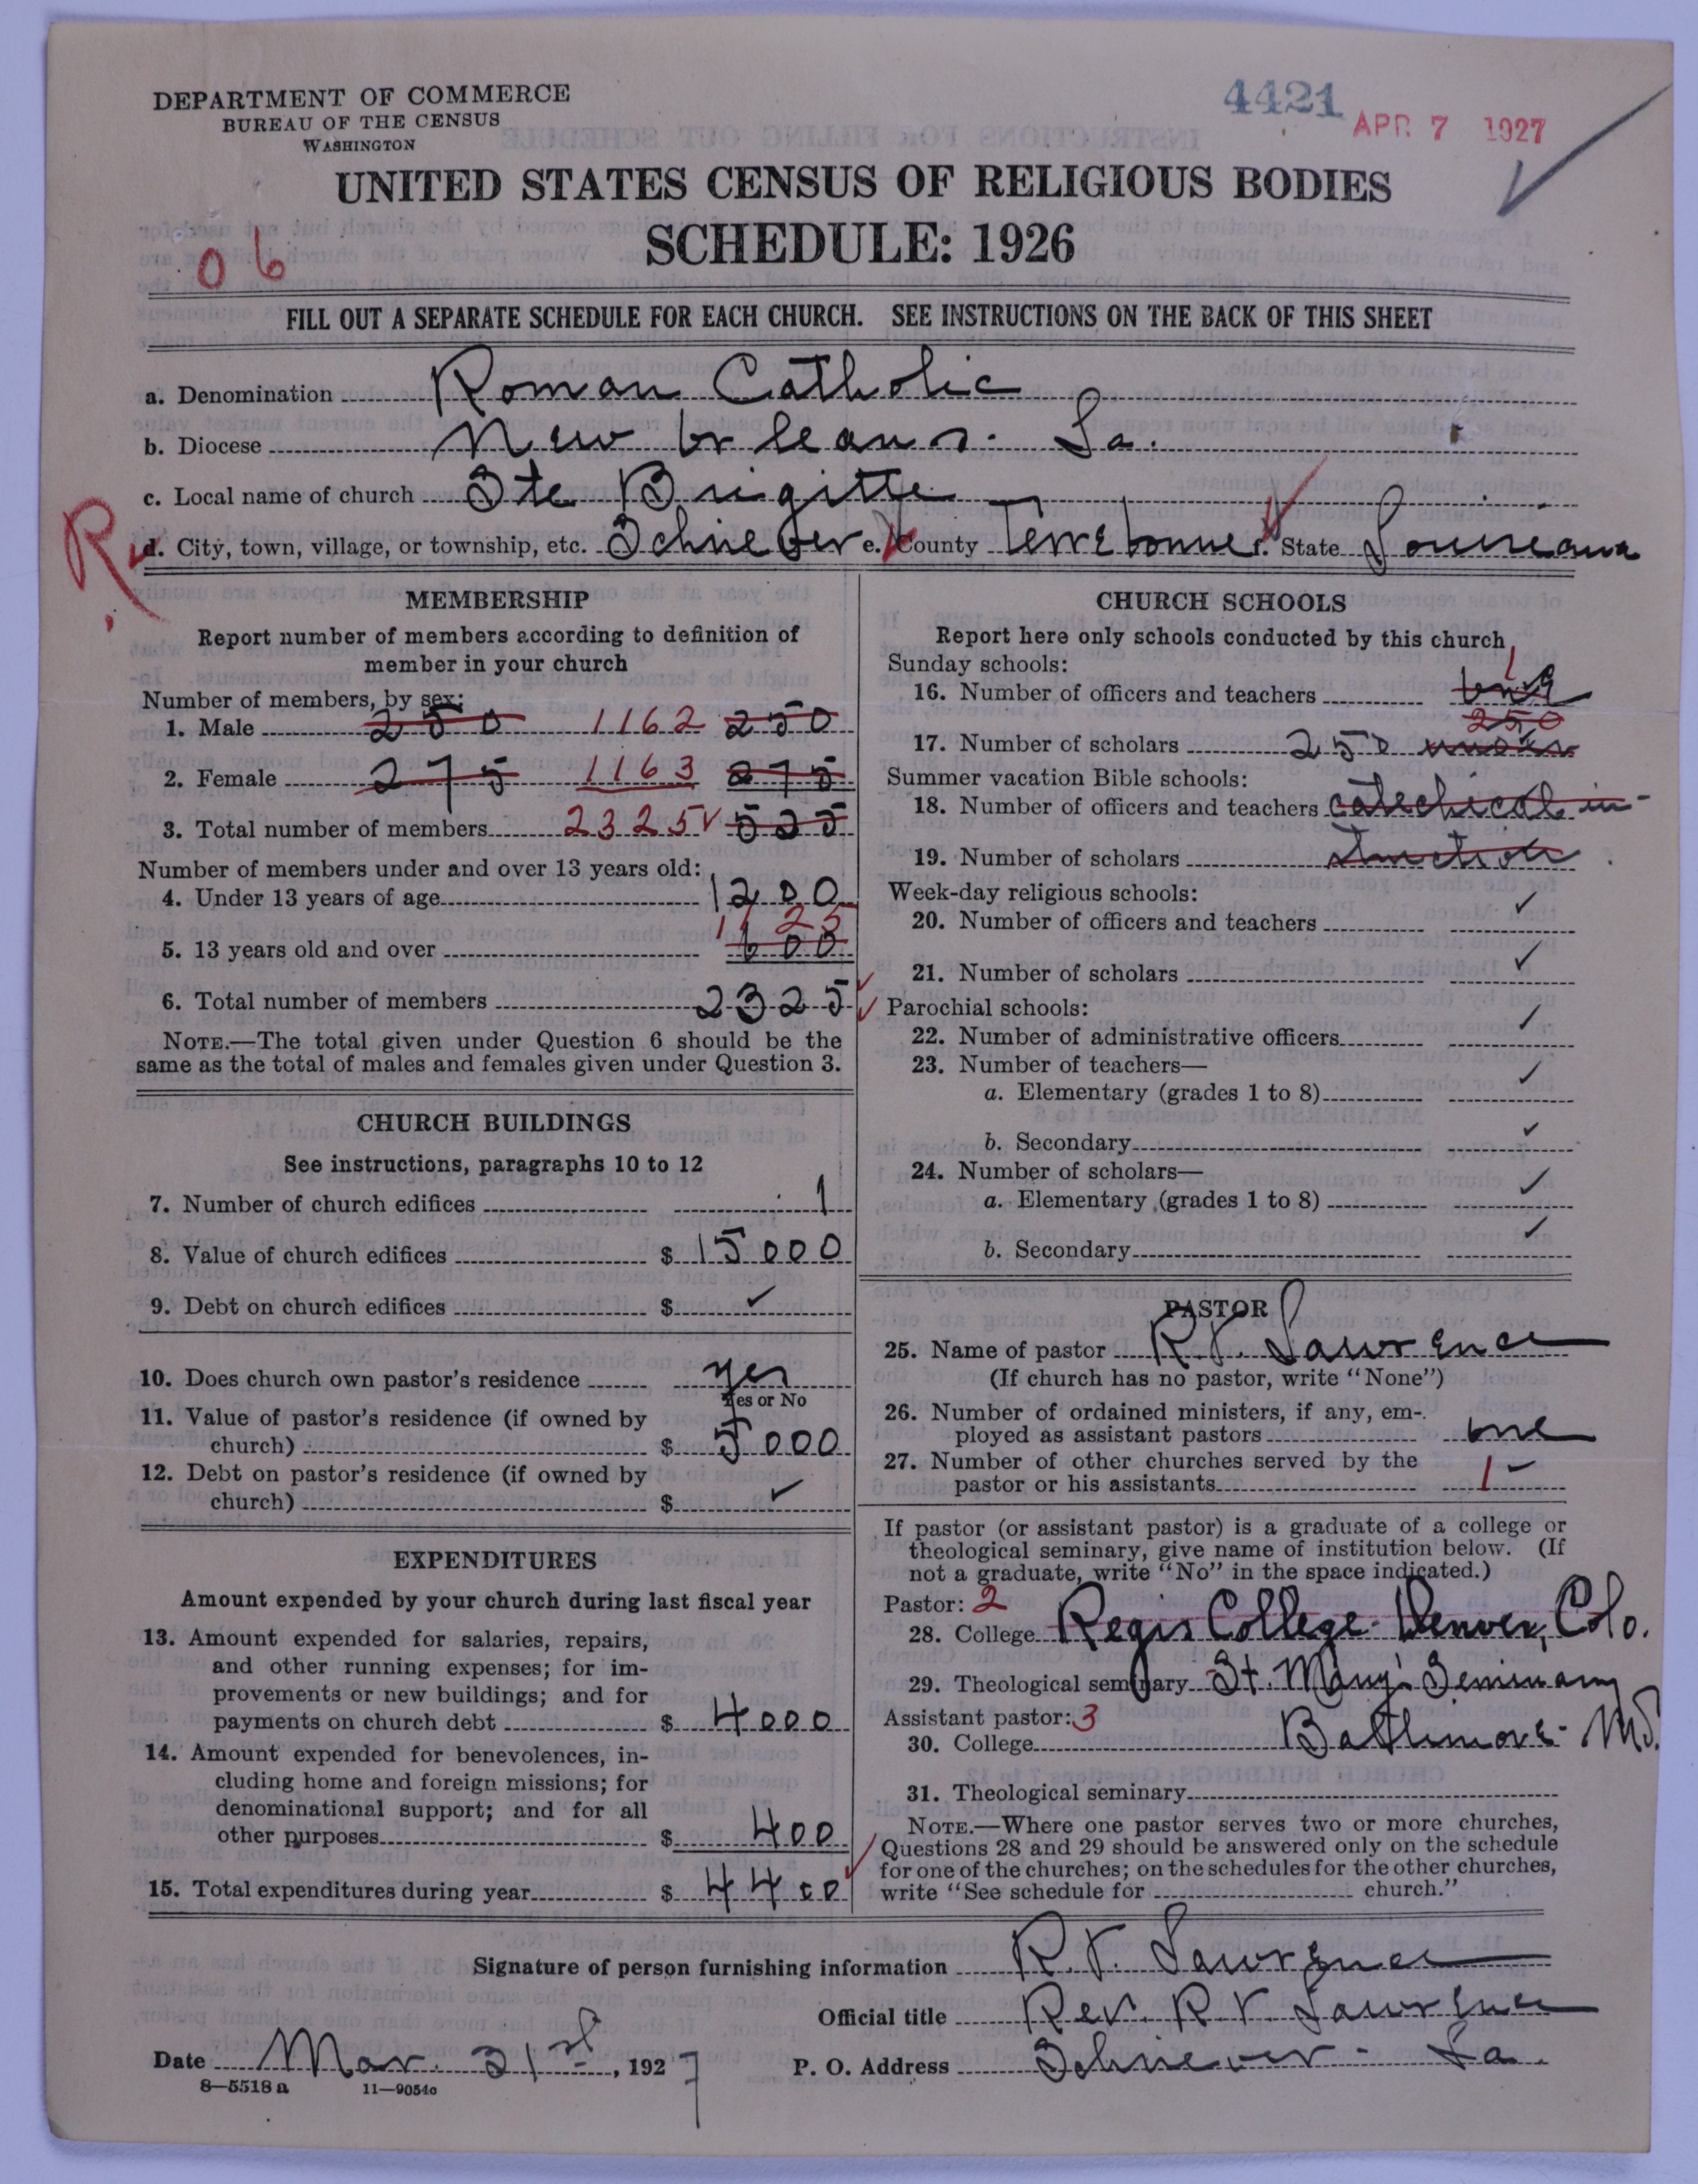 DEPARTMENT OF COMMERCE
BUREAU OF THE CENSUS
WASHINGTON
4421
APR 7 1927
UNITED STATES CENSUS OF RELIGIOUS BODIES
SCHEDULE: 1926
06
FILL OUT A SEPARATE SCHEDULE FOR EACH CHURCH. SEE INSTRUCTIONS ON THE BACK OF THIS SHEET
a. Denomination Roman Catholic
b. Diocese New Orleans. La.
c. Local name of church Ste Brigitte
R
d. City, town, village, or township, etc. Schriever e. County Terrebonne f. State Louisiana
MEMBERSHIP
Report number of members according to definition of
member in your church
Number of members, by sex:
1. Male 250 1162 250
2. Female 275 1163 275
3. Total number of members 2325 525
Number of members under and over 13 years old:
4. Under 13 years of age 1200
1125
5. 13 years old and over 600
6. Total number of members 2325
NOTE.—The total given under Question 6 should be the
same as the total of males and females given under Question 3.
CHURCH BUILDINGS
See instructions, paragraphs 10 to 12
7. Number of church edifices 1
8. Value of church edifices $ 15000
9. Debt on church edifices $ ✓
10. Does church own pastor's residence yes
Yes or No
11. Value of pastor's residence (if owned by
church) $ 5000
12. Debt on pastor's residence (if owned by
church) $ ✓
EXPENDITURES
Amount expended by your church during last fiscal year
13. Amount expended for salaries, repairs,
and other running expenses; for im-
provements or new buildings; and for
payments on church debt $ 4000
14. Amount expended for benevolences, in-
cluding home and foreign missions; for
denominational support; and for all
other purposes $ 400
15. Total expenditures during year $ 4400
CHURCH SCHOOLS
Report here only schools conducted by this church
Sunday schools:
1
16. Number of officers and teachers
250
17. Number of scholars 250
Summer vacation Bible schools:
18. Number of officers and teachers catechical in-
19. Number of scholars struction
Week-day religious schools:
20. Number of officers and teachers ✓
21. Number of scholars ✓
Parochial schools:
22. Number of administrative officers ✓
23. Number of teachers—
a. Elementary (grades 1 to 8) ✓
b. Secondary ✓
24. Number of scholars—
a. Elementary (grades 1 to 8) ✓
b. Secondary ✓
PASTOR
25. Name of pastor R.V. Lawrence
(If church has no pastor, write "None")
26. Number of ordained ministers, if any, em-
ployed as assistant pastors one
27. Number of other churches served by the
pastor or his assistants 1
If pastor (or assistant pastor) is a graduate of a college or
theological seminary, give name of institution below. (If
not a graduate, write "No" in the space indicated.)
Pastor: 2
28. College Regis College Denver, Colo.
29. Theological seminary St. Mary's Seminary
Assistant pastor: 3
30. College Baltimore Md.
31. Theological seminary
NOTE.—Where one pastor serves two or more churches,
Questions 28 and 29 should be answered only on the schedule
for one of the churches; on the schedules for the other churches,
write "See schedule for church."
Signature of person furnishing information R.V. Lawrence
Official title Rev. R.V. Lawrence
Date Mar. 31st, 1927 P. O. Address Schriever. La.
8—5518 a 11—9054c